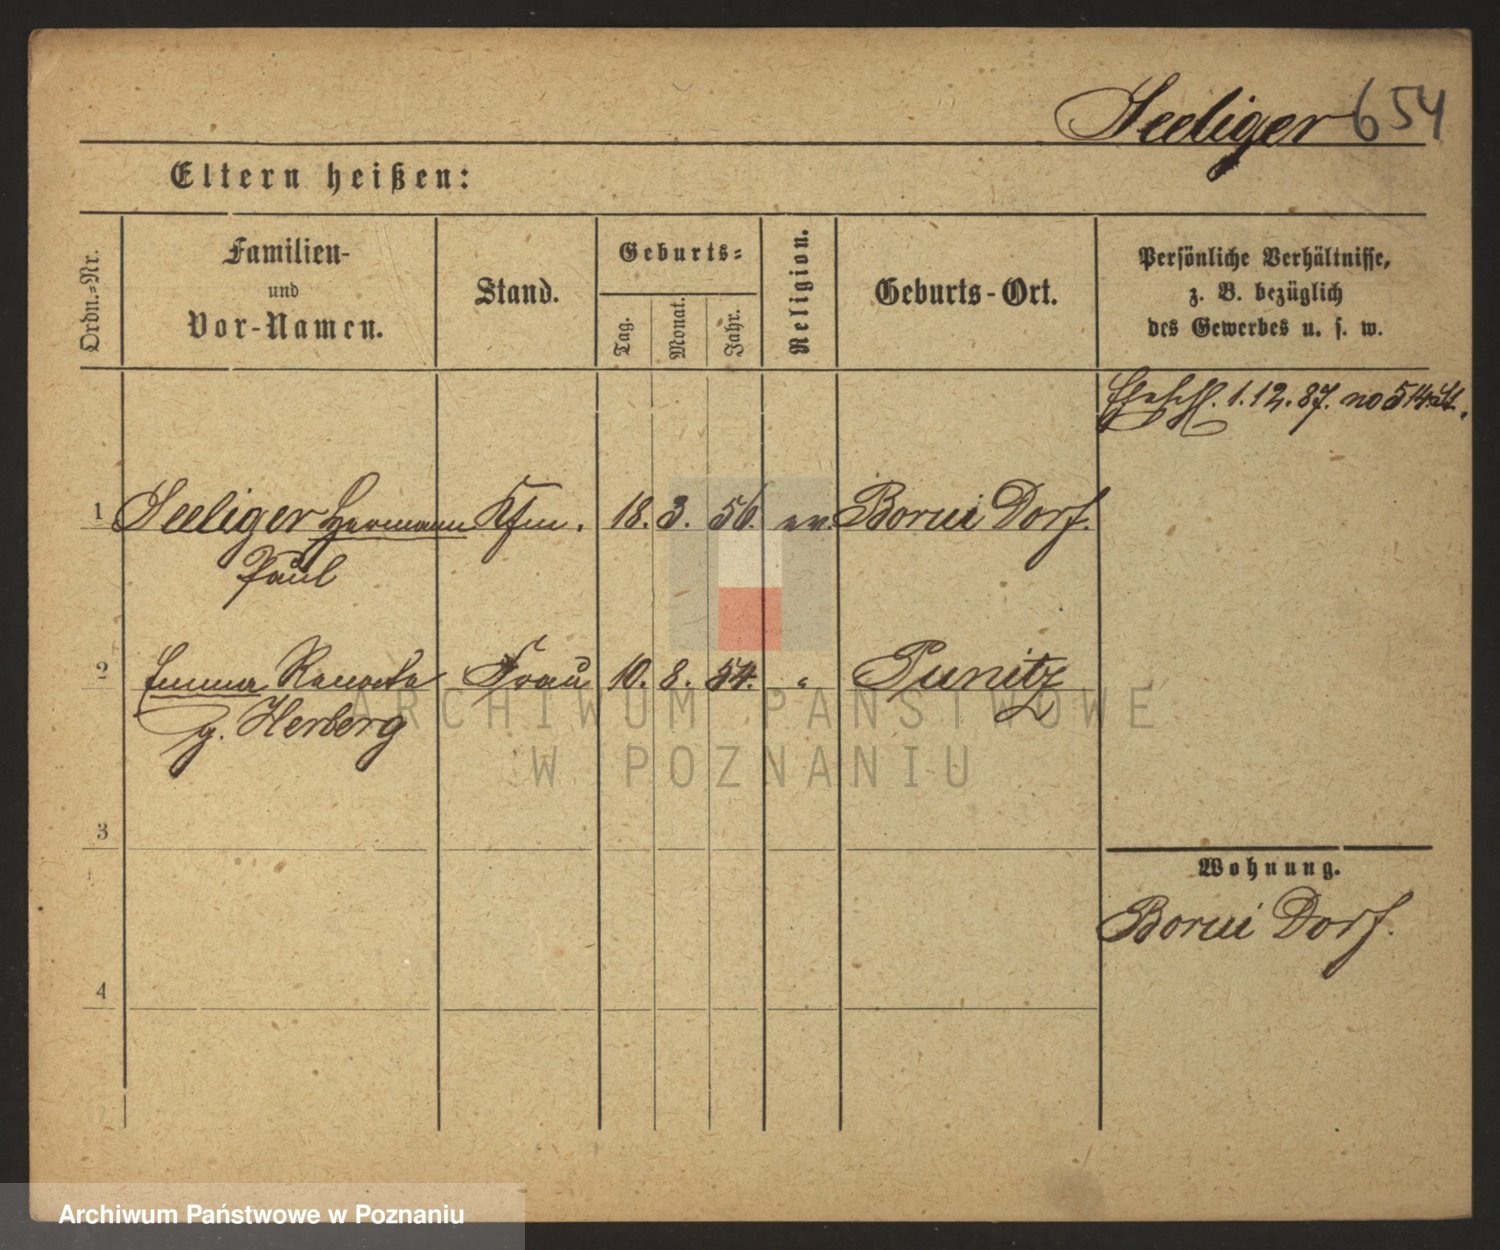 Seeliger 654
Eltern heißen:
Ordn.-Nr.
Familien-
und
Vor-Namen.
Stand.
Geburts-
Tag.
Monat.
Jahr.
Religion.
Geburts-Ort.
Persönliche Verhältnisse,
z. B. bezüglich
des Gewerbes u. s. w.
1.12.87. no 514
1 Seeliger Hermann Kfm. 18. 3. 56. ev. Borui Dorf.
Paul
2 Emma Renate Frau 10. 8. 54. " Punitz
g. Herberg
3
4
Wohnung.
Borui Dorf.
ARCHIWUM PAŃSTWOWE
W POZNANIU
Archiwum Państwowe w Poznaniu